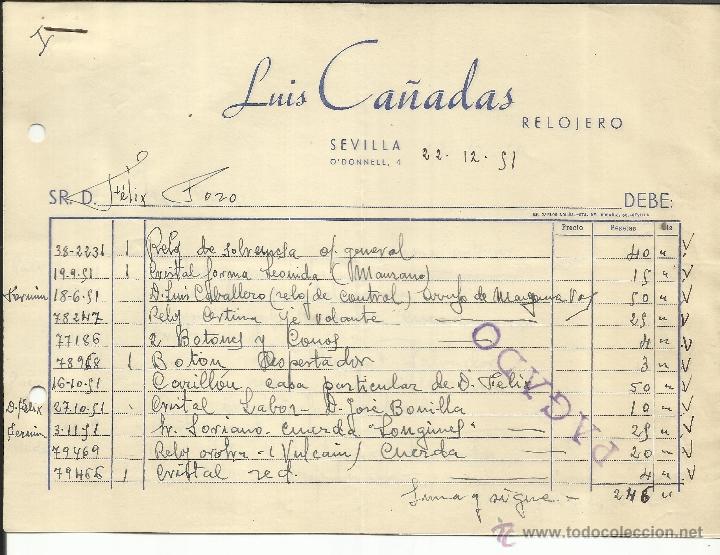 Luis Cañadas
RELOJERO
SEVILLA
O'DONNELL, 4
22-12-51
SR. D. Félix Pozo DEBE:
Precio Pesetas Cts
38-2231 1 Reloj de of general 40 "
19-9-51 1 Cristal forma Leonida (Manzano) 15 "
Fermin 18-6-51 D. Luis Caballero (reloj de control) 50 "
78247 Reloj Cortina eje volante 25 "
77186 2 Botones y Conos 4 "
78968 1 Boton Despertador 3 "
16-10-51 Carillón casa particular de D. Félix 50 "
D. Félix 27-10-51 Cristal Labor - D. José Bonilla 10 "
Fermin 3-11-51 Sr. Soriano - cuerda "Longines" 25 "
79469 Reloj (Vulcain) Cuerda 20 "
79466 1 Cristral red. 4 "
Suma y sigue - 246 "
PAGADO
www.todocoleccion.net